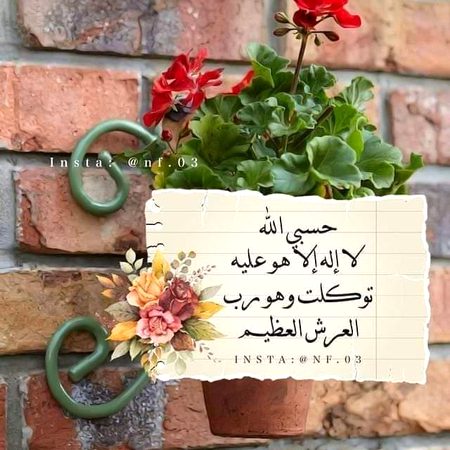 Insta: @nf.03
حسبي الله
لا إله إلا هو عليه
توكلت وهو رب
العرش العظيم
INSTA:@NF.03